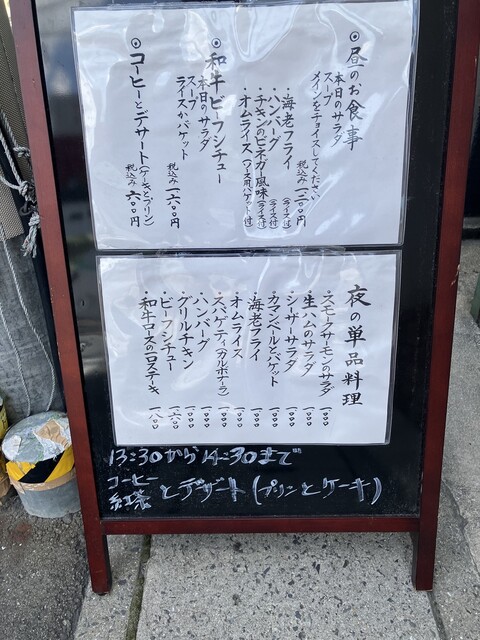 ◎昼のお食事
本日のサラダ
スープ
メインをチョイスしてください
税込み一二〇〇円
・海老フライ(ライス付)
・ハンバーグ(ライス付)
・チキンのビネガー風味(ライス付)
・オムライス(ソース用バケット付)
◎和牛ビーフシチュー
本日のサラダ
スープ
ライスかバケット
税込み一六〇〇円
◎コーヒーとデザート(ケーキとプリン)
税込み六〇〇円
夜の単品料理
・スモークサーモンのサラダ 一〇〇〇
・生ハムのサラダ 一〇〇〇
・シーザーサラダ 一〇〇〇
・カマンベールとバケット 一〇〇〇
・海老フライ 一〇〇〇
・オムライス 一〇〇〇
・スパゲティ(カルボナーラ) 一〇〇〇
・ハンバーグ 一〇〇〇
・グリルチキン 一〇〇〇
・ビーフシチュー 一六〇〇
・和牛ロースの一口ステーキ 一八〇〇
13:30から14:30まで
コーヒー
紅茶 とデザート(プリンとケーキ)